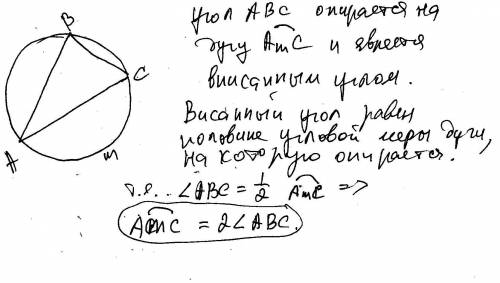 B
C
A
m
угол ABC опирается на
дугу AmC и является
вписанным углом.
Висанный угол равен
половине угловой меры дуги,
на которую опирается.
т.е. ∠ABC = 1/2 AmC =>
AmC = 2∠ABC.